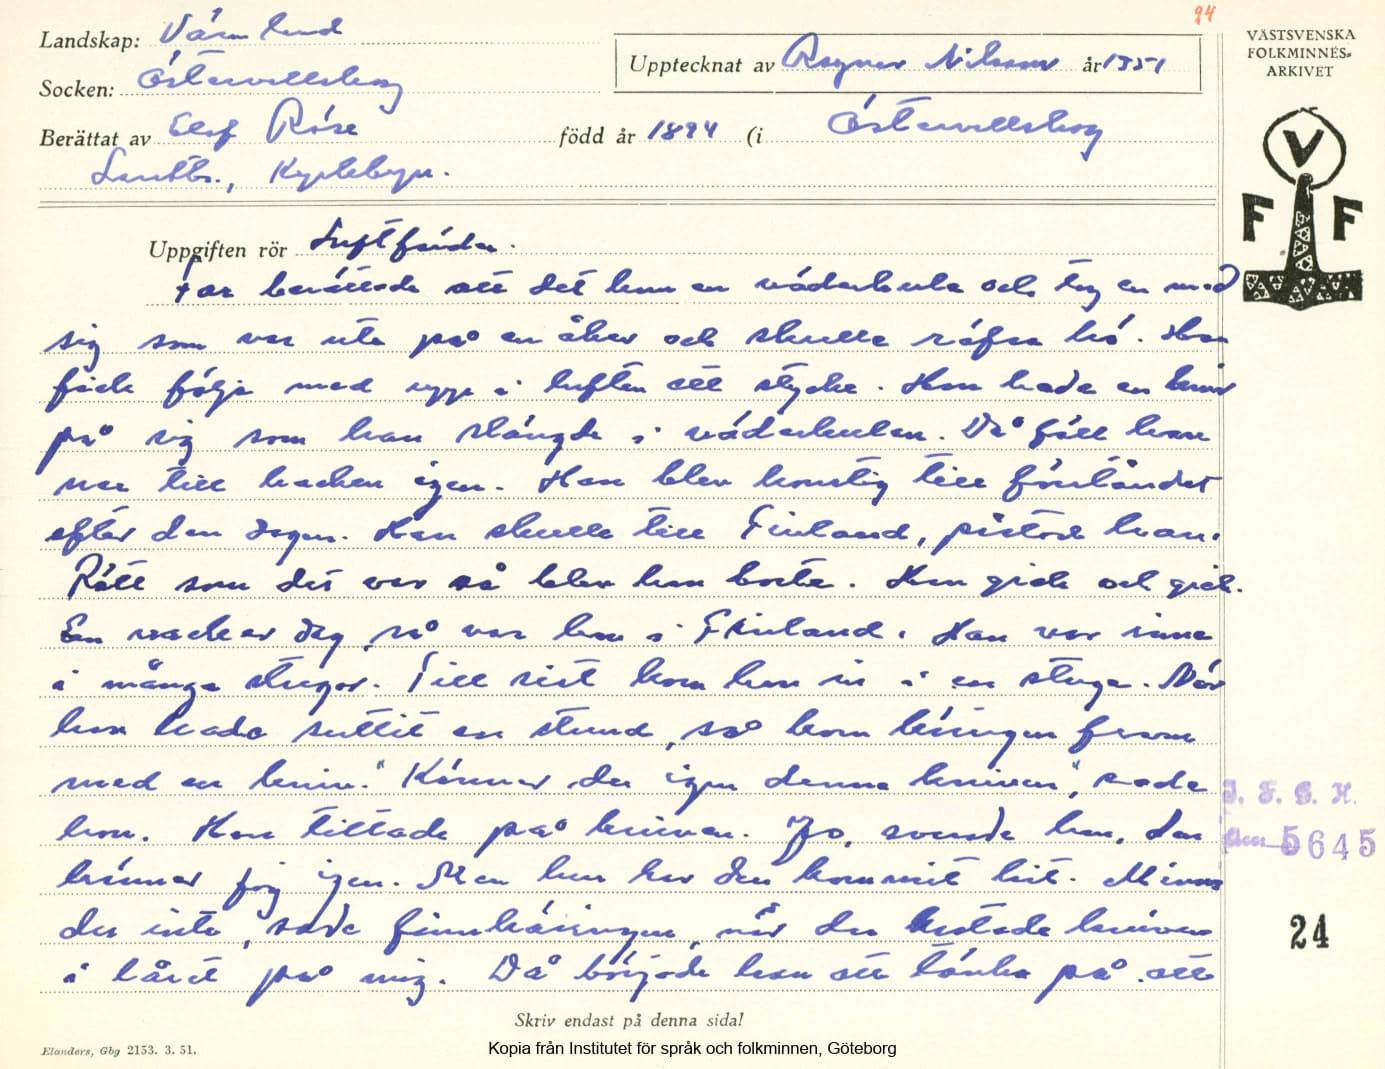 24
Landskap: Värmland
Upptecknat av Ragnar Nilsson år 1951
VÄSTSVENSKA
FOLKMINNES-
ARKIVET
Socken: Östervallskog
Berättat av Elof Röse född år 1894 (i Östervallskog
Lantbr.,
V
F F
Uppgiften rör Luftfärder.
Far berättade att det kom en väderkula och tog en med
sig som var ute på en åker och skulle räfsa hö. Han
fick följa med upp i luften ett stycke. Han hade en kniv
på sig som han slängde i väderkulan. Då föll han
ner till backen igen. Han blev konstig till förståndet
efter den dagen. Han skulle till Finland, påstod han.
Rätt som det var så blev han borta. Han gick och gick.
En vacker dag så var han i Finland. Han var inne
i många stugor. Till sist kom han in i en stuga. När
han hade suttit en stund, så kom käringen fram
med en kniv. "Känner du igen denna kniven", sade
hon. Han tittade på kniven. Jo, svarade han, den
känner jag igen. Men hur har den kommit hit. Minns
du inte, sade finnkäringen, när du kastade kniven
i låret på mig. Då började han att tänka på att
I. F. G. H.
5645
24
Skriv endast på denna sida!
Elanders, Gbg 2153. 3. 51.
Kopia från Institutet för språk och folkminnen, Göteborg